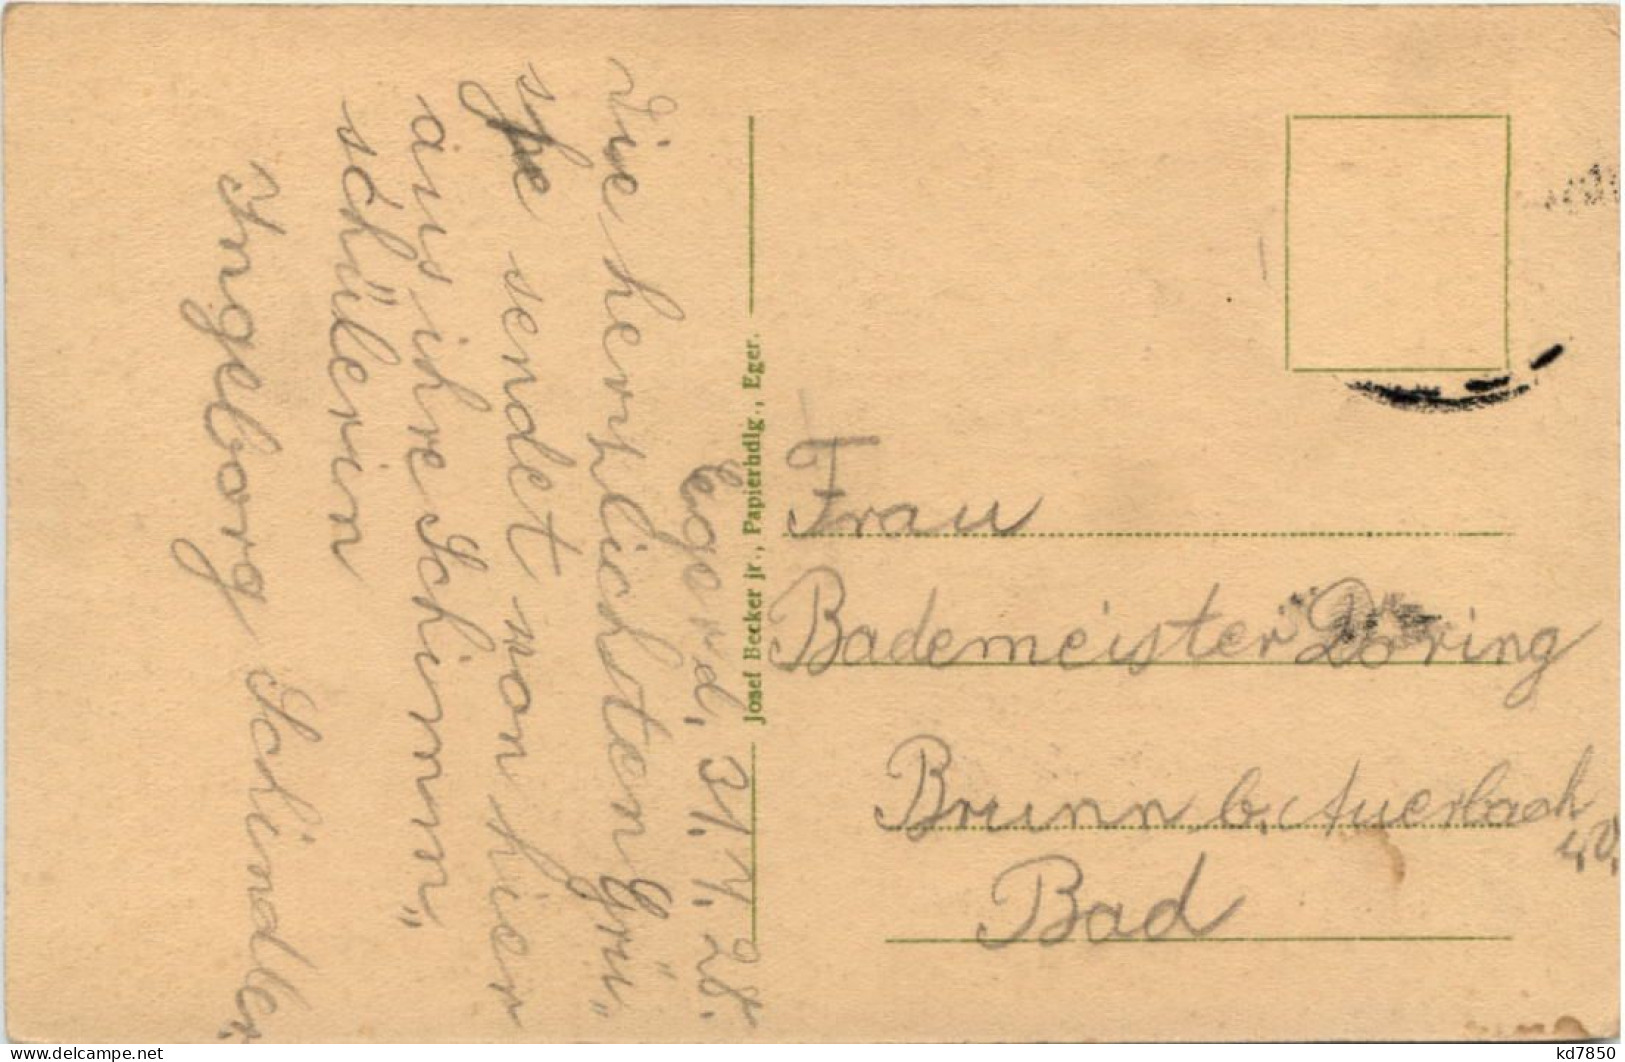 Eger, d. 31. 7. 28.
Die herzlichsten Grü"
sse sendet von hier
aus ihre Schwimm"
schülerin
Ingeborg Schindler
Josef Becker jr., Papierhdlg., Eger.
Frau
Bademeister Döring
Brunn b. Auerbach
i, V,
Bad
kd7850